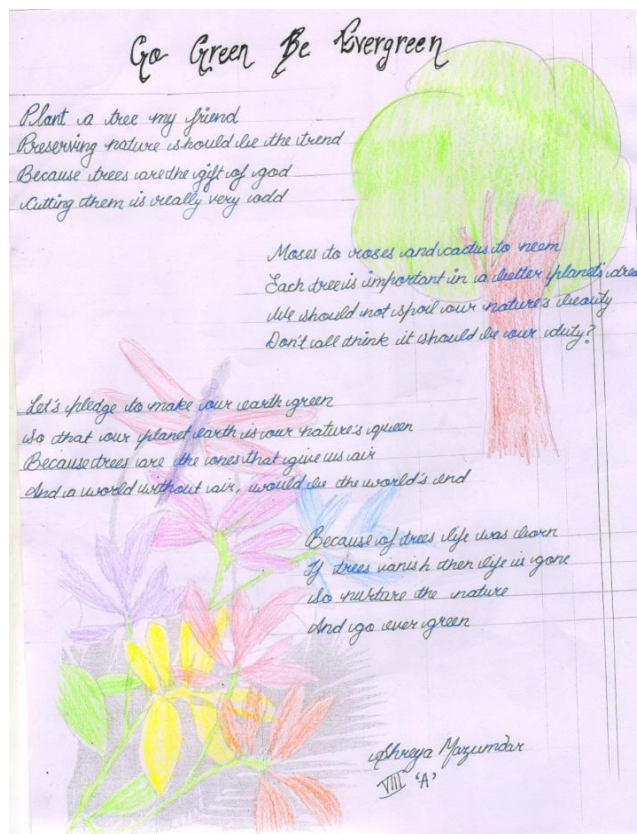 Go Green Be Evergreen
Plant a tree my friend
Preserving nature should be the trend
Because trees are the gift of god
Cutting them is really very odd
Moses to roses and cactus to neem
Each tree is important in a better planet's
We should not spoil our nature's beauty
Don't all think it should be our duty?
Let's pledge to make our earth green
So that our planet earth is our nature's queen
Because trees are the ones that give us air
And a world without air, would be the world's end
Because of trees life was born
If trees vanish then life is gone
So nurture the nature
And go ever green
Shreya Mazumdar
VIII 'A'